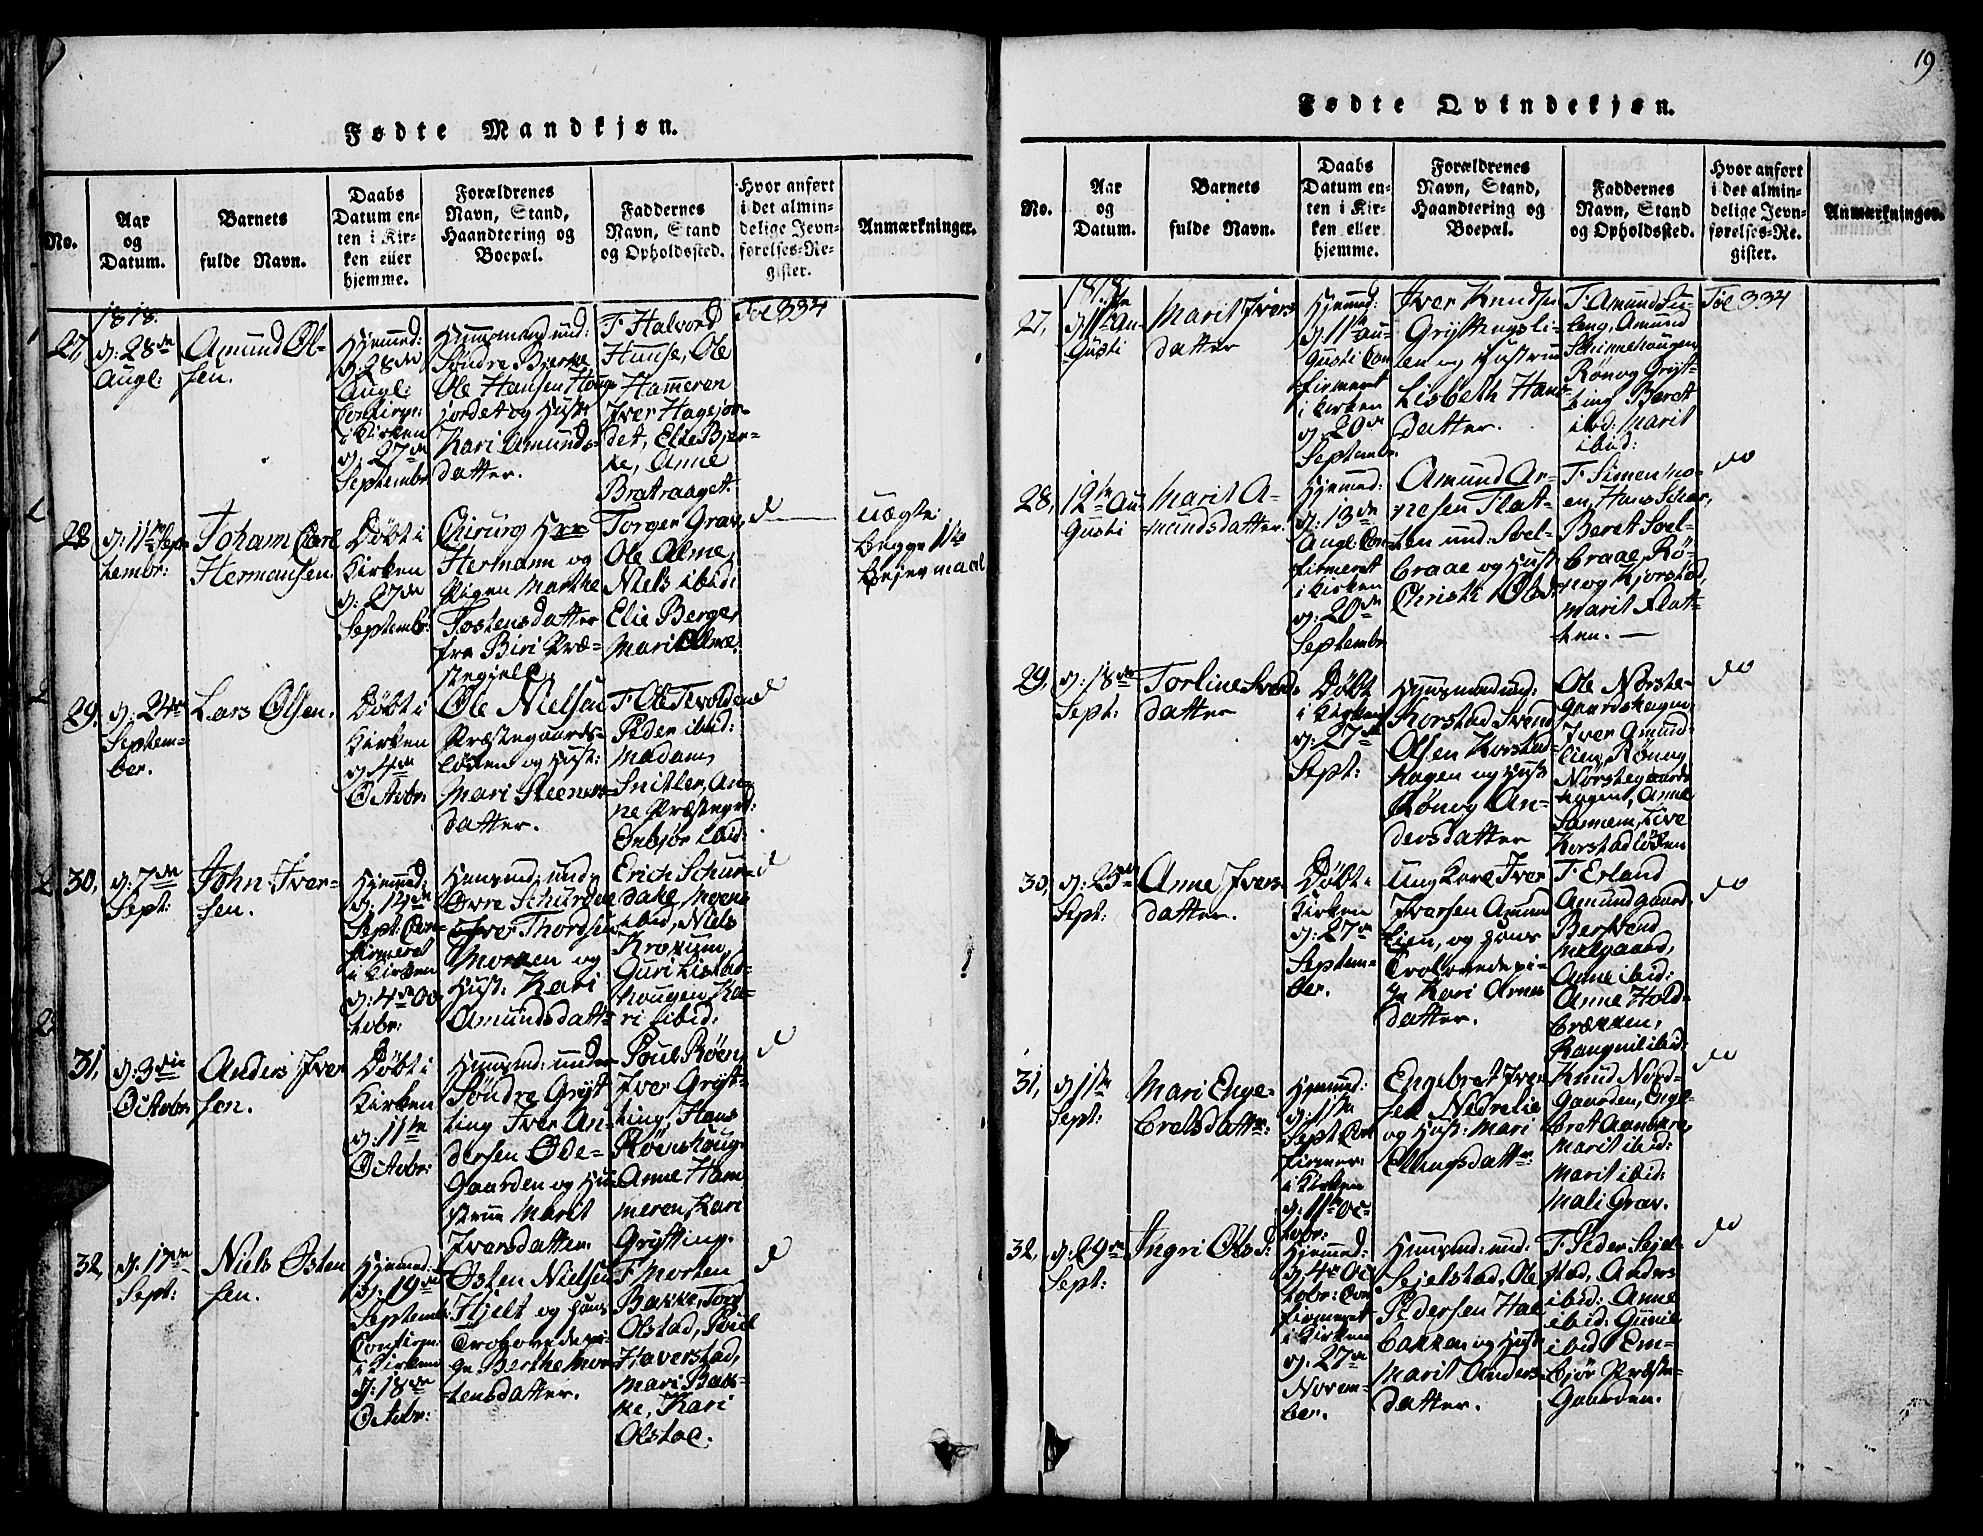 Fødte Mandkjøn.
No.
Aar
og
Datum.
Barnets
fulde Navn.
Daabs
Datum en-
ten i Kir-
ken eller
hjemme.
Forældrenes
Navn, Stand,
Haandtering og
Boepæl.
Faddernes
Navn, Stand
og Opholdssted.
Hvor anført
i det almin-
delige Jevn-
førelses-Re-
gister.
Anmærkninger.
1818.
27,
d: 28de
Augl:
Amund Ol-
sen.
Hjemmed:
d: 28de
Augl:
Confirm:
i Kirken
d: 27de
Septembr
Huusmand und:
Søndre Bjerke
Ole Hansen Houge
jordet og Hust:
Kari Amunds-
datter.
F. Halvord
Hunse, Ole
Hammeren
Iver Hagejor-
det, Elie Bjer-
ke, Anne
Bratraaget.
Fol 334
28
d: 11te Sep-
tembr:
Johan Carl
Hermansen.
Døbt i
Kirken
d: 27de
Septembr:
Chirurg Herr
Hermann og
Pigen Marthe
Tostensdatter
fra Biri Præ-
stegield.
Torger Grav,
Ole Alme,
Niels ibid:
Elie Berge,
Mari Alme.
d
uægte
begge 1te
Leiermaal
29.
d. 24de
Septem-
ber.
Lars Olsen.
Døbt i
Kirken
d: 4de
Octobr:
Ole Nielsen
Præstegaards-
løkken og Hust:
Mari Steners-
datter.
F. Ole Tvolden
Peder ibid:
Madam
Snitler, An-
ne Præstegrd:
Embjør ibid:
d
30,
d: 7de
Sept:
John Iver-
sen.
Hjemmed:
d: 12de
Sept: Con-
firmeret
i Kirken
d: 4de Oc-
tobr:
Huusmd: und
Øvre Schurdal
Iver Thordsen
Morken og
Hust: Kari
Amundsdattr
Erich Schur-
dahl, Moen
ibid, Niels
Kroxum,
Guri Listad-
hougen, Ka-
ri ibid:
d
31,
d: 3die
Octobr:
Anders Iver
sen.
Døbt i
Kirken
d: 11te
Octobr:
Huusmd: under
Søndre Gryt
ting Iver An-
dersen Øde-
Gaarden og Hu-
strue Marit
Iversdatter.
Poul Røen,
Iver Gryt-
ting, Hans
Røenshoug,
Anne Ham
meren, Kari
Grytting.
d
32,
d. 17de
Sept:
Niels Østen
sen.
Hjemmed:
d: 19de
Septemb:
Confirm:
i Kirken
d: 18de
Octobr:
Østen Nielsen
Hjelt og hans
Trolovede pi-
ge Berthe Mor-
tensdatter.
F. Morten
Bakke, Tord
Olstad, Poul
Haverstad,
Mari Bak-
ke, Kari
Olstad.
d
19
Fødte Qvindekjøn.
No.
Aar
og
Datum.
Barnets
fulde Navn.
Daabs
Datum en-
ten i Kir-
ken eller
hjemme.
Forældrenes
Navn, Stand,
Haandtering og
Boepæl.
Faddernes
Navn, Stand
og Opholdssted.
Hvor anført
i det almin-
delige Jevn-
førelses-Re-
gister.
Anmærkninger.
1818
27,
d: 11te Au-
Gusti
Marit Ivers
datter
Hjemmed:
d: 11te Au-
Gusti Con
firmeret
i Kirken
d: 20de
Septembr
Iver Knudsen
Gryttingsli-
en og Hustrue
Lisbeth Hans
datter.
F. Amund
Amund
Ronog Gryt-
ting Beret
ibid: Marit
ibid:
Fol 334
28,
12te Au-
Gusti
Marit A-
mundsdatter:
Hjemmed:
d: 13de
Augl: Con-
firmeret
i Kirken
d: 20de
Septembr
Amund Ar-
nesen Flat-
ten und: Soel-
braae og Hust
Christi Olsd:
F. Simen Mo-
en, Hans
Beret Soel-
braae, Rø-
nog Kjorstad,
Marit Flat-
ten.
do
29,
d: 18de
Sept:
Torline Svends
datter
Døbt
i Kirken
d: 27de
Sept:
Huusmd und:
Korstad Svend
Olsen Korstad
hagen og Hust
Rønog An-
dersdatter
Ole Norste-
gaardshagen
Iver Amund
lien, Rønog
Norstegaards
hagen, Anne
Lannem, Live
Korstadløkken
do
30,
d: 25de
Sept:
Anne Ivers
datter.
Døbt i
Kirken
d: 27de
Septem-
ber.
Ung Karl Iver
Iversen Amund
lien, og hans
Trolovede pi-
ge Kari Arnes
datter.
F. Erland
Amundgaard,
Bersvend
Melgaard,
Anne ibid:
Anne Hold-
brækken,
Rangnil ibid:
do
31,
d: 1ste
Sept:
Mari Enge-
bretsdattr:
Hjemmed:
d: 1ste
Sept Con
firmer:
i Kirken
d: 11te Oc-
tobr:
Engebret Iver
sen Nedrelie
og Hust: Mari
Ellingsdattr
Knud Nord-
Gaarden, Enge-
bret
Marit ibid:
Marit ibid:
Mali Grav.
do
32,
d: 29de
Sept:
Ingri Olsd:
Hjemmed:
d: 4de Oc
tobr: Con
firmeret
i Kirken
d: 27de
Novem-
ber.
Huusmd: und:
Sejelstad, Ole
Pedersen Hae
bakken og Hust
Marit Anders
datter.
F. Peder Sejel-
stad, Anders
ibid: Anne
ibid: Gunil
ibid Em-
bjør Præste-
Gaarden.
do